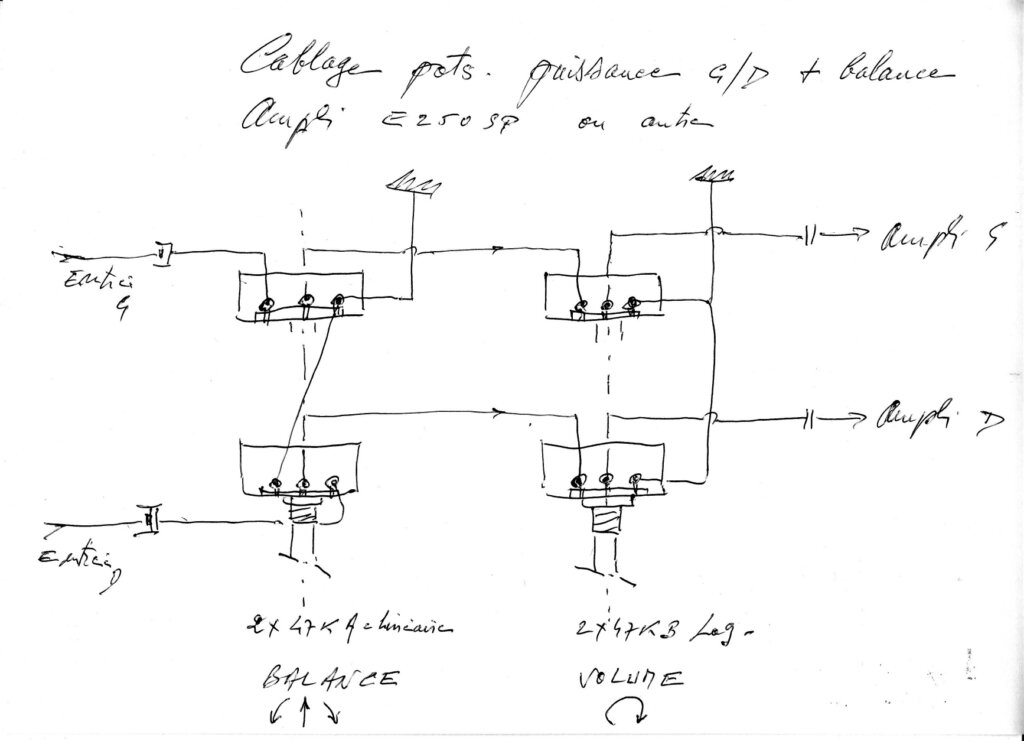 Cablage pots. puissance G/D + balance
Ampli E250SP ou autre
Entrée
G
Ampli G
Ampli D
Entrée
D
2x47K A linéaire
2x47KB Log.
BALANCE
VOLUME